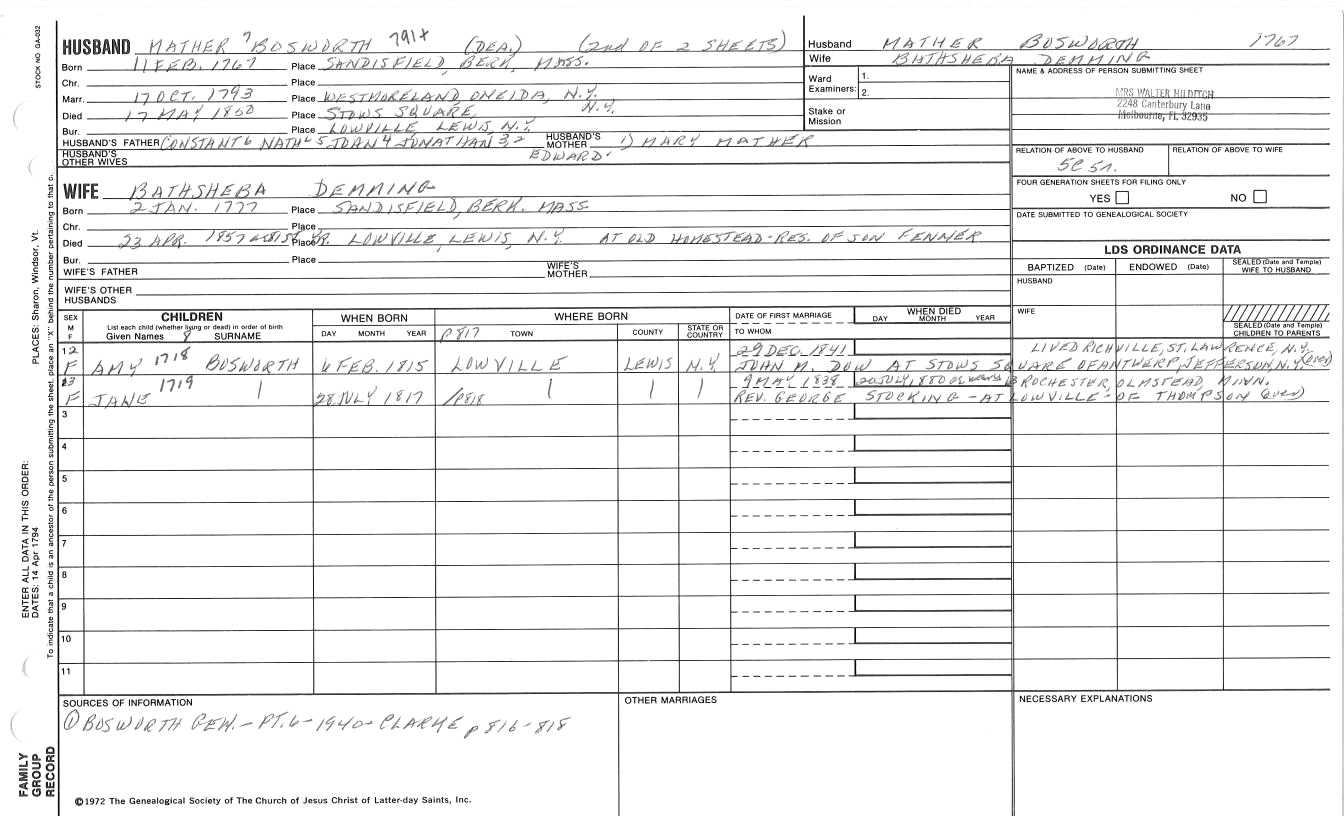 STOCK NO. GA-032
HUSBAND MATHER 7 BOSWORTH 791+ (DEA.) (2nd OF 2 SHEETS)
Born 11 FEB. 1767 Place SANDISFIELD, BERK, MASS.
Chr. Place
Marr. 17 OCT. 1793 Place WESTMORELAND, ONEIDA, N.Y.
Died 17 MAY 1850 Place STOWS SQUARE, N.Y.
Bur. Place LOWVILLE, LEWIS, N.Y.
HUSBAND'S FATHER CONSTANT 6 NATH'L 5 JOHN 4 JONATHAN 3,2 EDWARD 1 HUSBAND'S MOTHER 1) MARY MATHER
HUSBAND'S OTHER WIVES
Husband MATHER BOSWORTH 1767
Wife BATHSHEBA DEMMING
Ward Examiners: 1.
2.
Stake or Mission
NAME & ADDRESS OF PERSON SUBMITTING SHEET
MRS WALTER HILDITCH
2248 Canterbury Lane
Melbourne, FL 32935
RELATION OF ABOVE TO HUSBAND RELATION OF ABOVE TO WIFE
FOUR GENERATION SHEETS FOR FILING ONLY
YES NO
DATE SUBMITTED TO GENEALOGICAL SOCIETY
WIFE BATHSHEBA DEMMING
Born 2 JAN. 1777 Place SANDISFIELD, BERK. MASS
Chr. Place
Died 23 APR. 1857 Place LOWVILLE, LEWIS, N.Y. AT OLD HOMESTEAD-RES. OF SON FENNER
Bur. Place
WIFE'S FATHER WIFE'S MOTHER
WIFE'S OTHER HUSBANDS
LDS ORDINANCE DATA
BAPTIZED (Date) ENDOWED (Date) SEALED (Date and Temple) WIFE TO HUSBAND
HUSBAND
WIFE
SEALED (Date and Temple) CHILDREN TO PARENTS
SEX M F CHILDREN WHEN BORN WHERE BORN DATE OF FIRST MARRIAGE WHEN DIED
List each child (whether living or dead) in order of birth
Given Names 8 SURNAME DAY MONTH YEAR p817 TOWN COUNTY STATE OR COUNTRY TO WHOM DAY MONTH YEAR
12 1718 29 DEC. 1841 LIVED RICHVILLE, ST. LAWRENCE, N.Y.
F AMY BOSWORTH 6 FEB. 1815 LOWVILLE LEWIS N.Y. JOHN M. DOW AT STOWS SQUARE OF ANTWERP, JEFFERSON, N.Y. (over)
13 1719 9 MAY 1838 20 JULY, 1880 ROCHESTER, OLMSTEAD, MINN.
F JANE 28 JULY 1817 /p818 REV. GEORGE STOCKING - AT LOWVILLE - OF THOMPSON (over)
3
4
5
6
7
8
9
10
11
SOURCES OF INFORMATION OTHER MARRIAGES NECESSARY EXPLANATIONS
① BOSWORTH GEN. - PT. 6 - 1940 - CLARKE p 816-818
©1972 The Genealogical Society of The Church of Jesus Christ of Latter-day Saints, Inc.
PLACES: Sharon, Windsor, Vt.
ENTER ALL DATA IN THIS ORDER:
DATES: 14 Apr 1794
To indicate that a child is an ancestor of the person submitting the sheet, place an "X" behind the number pertaining to that c.
FAMILY
GROUP
RECORD